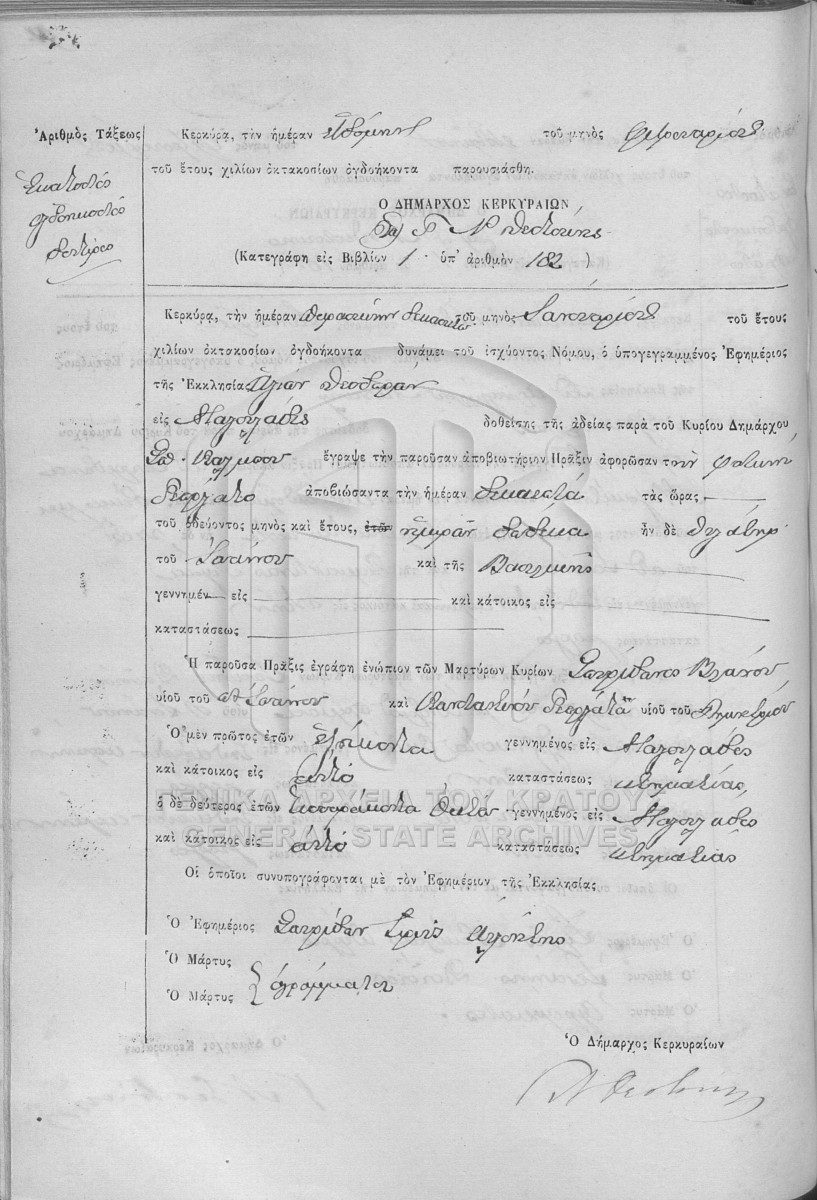 Ἀριθμὸς Τάξεως
Ἑκατοστὸς
ὀγδοηκοστὸς
δεύτερος
Κερκύρᾳ, τὴν ἡμέραν ἑβδόμην τοῦ μηνὸς Φεβρουαρίου
τοῦ ἔτους χιλίων ὀκτακοσίων ὀγδοήκοντα παρουσιάσθη.
Ο ΔΗΜΑΡΧΟΣ ΚΕΡΚΥΡΑΙΩΝ
Γ Μ Θεοτόκης
(Κατεγράφη εἰς Βιβλίον 1. ὑπ' ἀριθμὸν 182)
Κερκύρᾳ, τὴν ἡμέραν Παρασκευὴν τοῦ μηνὸς Ἰανουαρίου τοῦ ἔτους
χιλίων ὀκτακοσίων ὀγδοήκοντα δυνάμει τοῦ ἰσχύοντος Νόμου, ὁ ὑπογεγραμμένος Ἐφημέριος
τῆς Ἐκκλησίας Ἁγίων Θεοδώρων
εἰς Ἀλαγουλάδες δοθείσης τῆς ἀδείας παρὰ τοῦ Κυρίου Δημάρχου
ἔγραψε τὴν παροῦσαν ἀποβιωτήριον Πρᾶξιν ἀφορῶσαν τὴν Φωτεινὴ
ἀποβιώσαντα τὴν ἡμέραν δεκαεπτά τὰς ὥρας
τοῦ ὁδεύοντος μηνὸς καὶ ἔτους, ἐτῶν ἡμερῶν δώδεκα ἦν δὲ θυγάτηρ
τοῦ Ἰωάννου καὶ τῆς Βασιλικῆς
γεννημέν εἰς καὶ κάτοικος εἰς
καταστάσεως
Ἡ παροῦσα Πρᾶξις ἐγράφη ἐνώπιον τῶν Μαρτύρων Κυρίων Σπυρίδωνος Βλάχου
υἱοῦ τοῦ Ἰωάννου καὶ Κωνσταντίνου υἱοῦ τοῦ Δημητρίου
Ὁ μὲν πρῶτος ἐτῶν ἑξήκοντα γεννημένος εἰς Ἀλαγουλάδες
καὶ κάτοικος εἰς αὐτό καταστάσεως κτηματίας
ὁ δὲ δεύτερος ἐτῶν τεσσαράκοντα ὀκτώ γεννημένος εἰς Ἀλαγουλάδες
καὶ κάτοικος εἰς αὐτό καταστάσεως κτηματίας
Οἱ ὁποῖοι συνυπογράφονται μὲ τὸν Ἐφημέριον τῆς Ἐκκλησίας
Ὁ Ἐφημέριος Σπυρίδων
Ὁ Μάρτυς
Ὁ Μάρτυς ἀγράμματοι
Ὁ Δήμαρχος Κερκυραίων
Γ Μ Θεοτόκης
ΓΕΝΙΚΑ ΑΡΧΕΙΑ ΤΟΥ ΚΡΑΤΟΥΣ
GENERAL STATE ARCHIVES